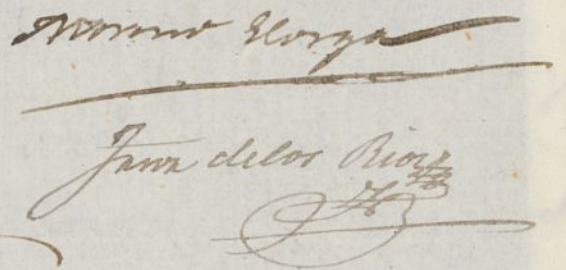 Moreno Elorza
Juan delos Rios